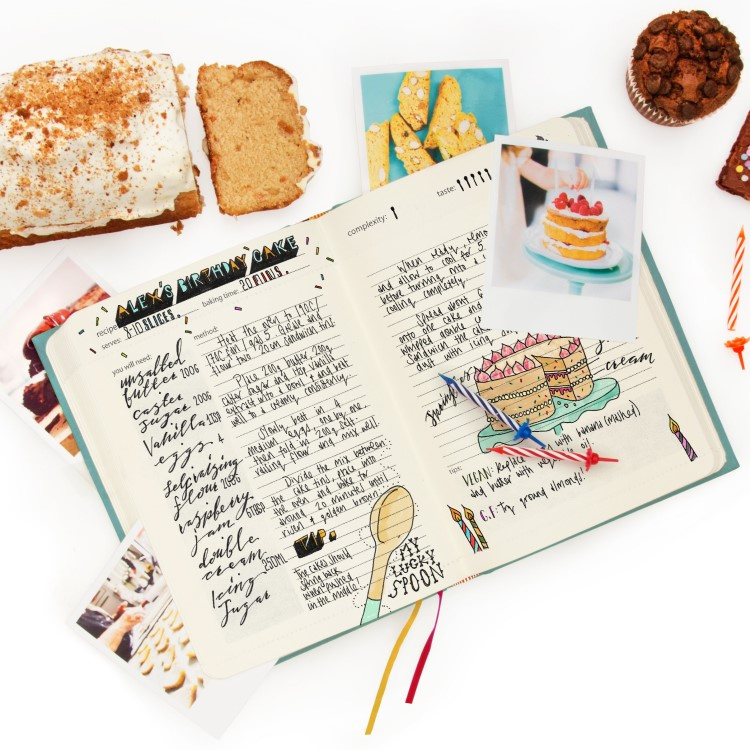 ALEX'S BIRTHDAY CAKE
recipe
serves: 8-10 SLICES.
baking time: 20 MINS.
you will need:
unsalted
butter 200G
caster
sugar 200G
Vanilla 1TSP
eggs 4
selfraising
flour 200G
raspberry
jam 6TBSP
double
cream 250ML
Icing
Sugar
method:
Heat the oven to 190C/
170C fan/ gas 5. Grease and
flour two 20cm sandwich tins.
Place 200g butter, 200g
caster sugar and 1tsp vanilla
extract into a bowl & and beat
well to a creamy consistency.
Slowly beat in 4
medium eggs, one by one,
then fold in 200g self
raising flour and mix well.
Divide the mix between
the cake tins, place into
the oven and bake for
around 20 minutes until
risen & golden brown.
TIP:
The cakes should
spring back
when pushed
in the middle.
MY
LUCKY
SPOON
complexity:
taste:
When ready, remo
and allow to cool for 5
before turning onto a
cooling completely.
Spread about 6
onto one cake and
whipped double
Sandwich the cak
dust with icing
cream
tips:
VEGAN: Replace with banana (mashed)
and butter with vegetable oil.
G.F: Try ground almond!!